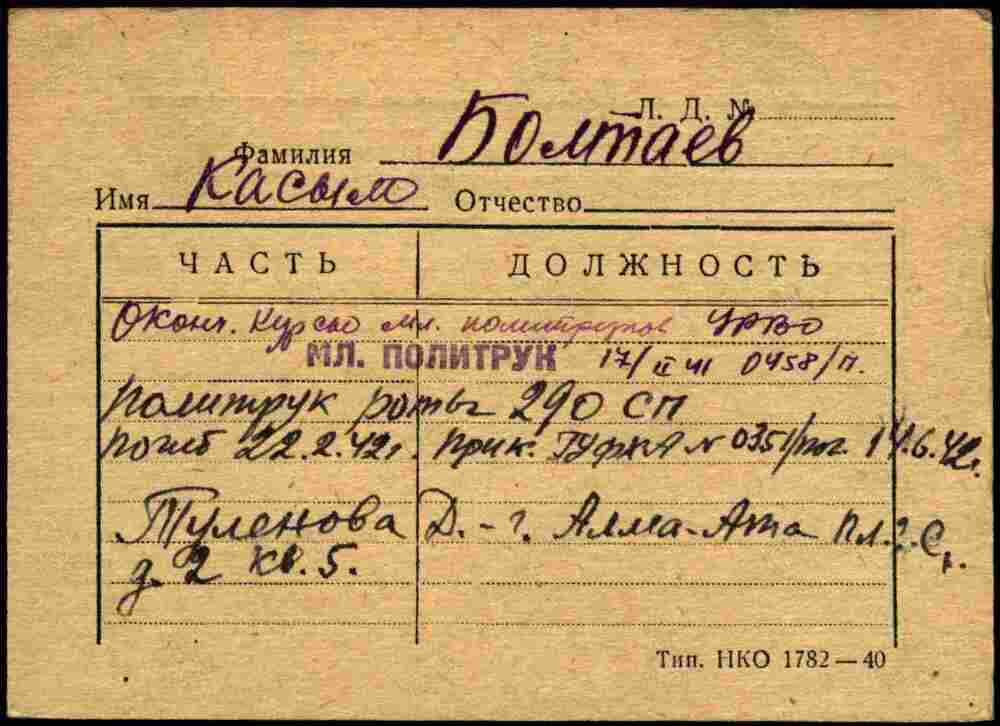 Л. Д. №
Фамилия Болтаев
Имя Касым Отчество
ЧАСТЬ ДОЛЖНОСТЬ
Оконч. Курсы мл. политруков УРВО
МЛ. ПОЛИТРУК 17/II 41 0458/п.
Политрук роты 290 СП
погиб 22.2.42г. Прик. ГУФКА № 0351/пог. 14.6.42г.
Туленова Д. - г. Алма-Ата
д. 2 кв. 5.
Тип. НКО 1782—40